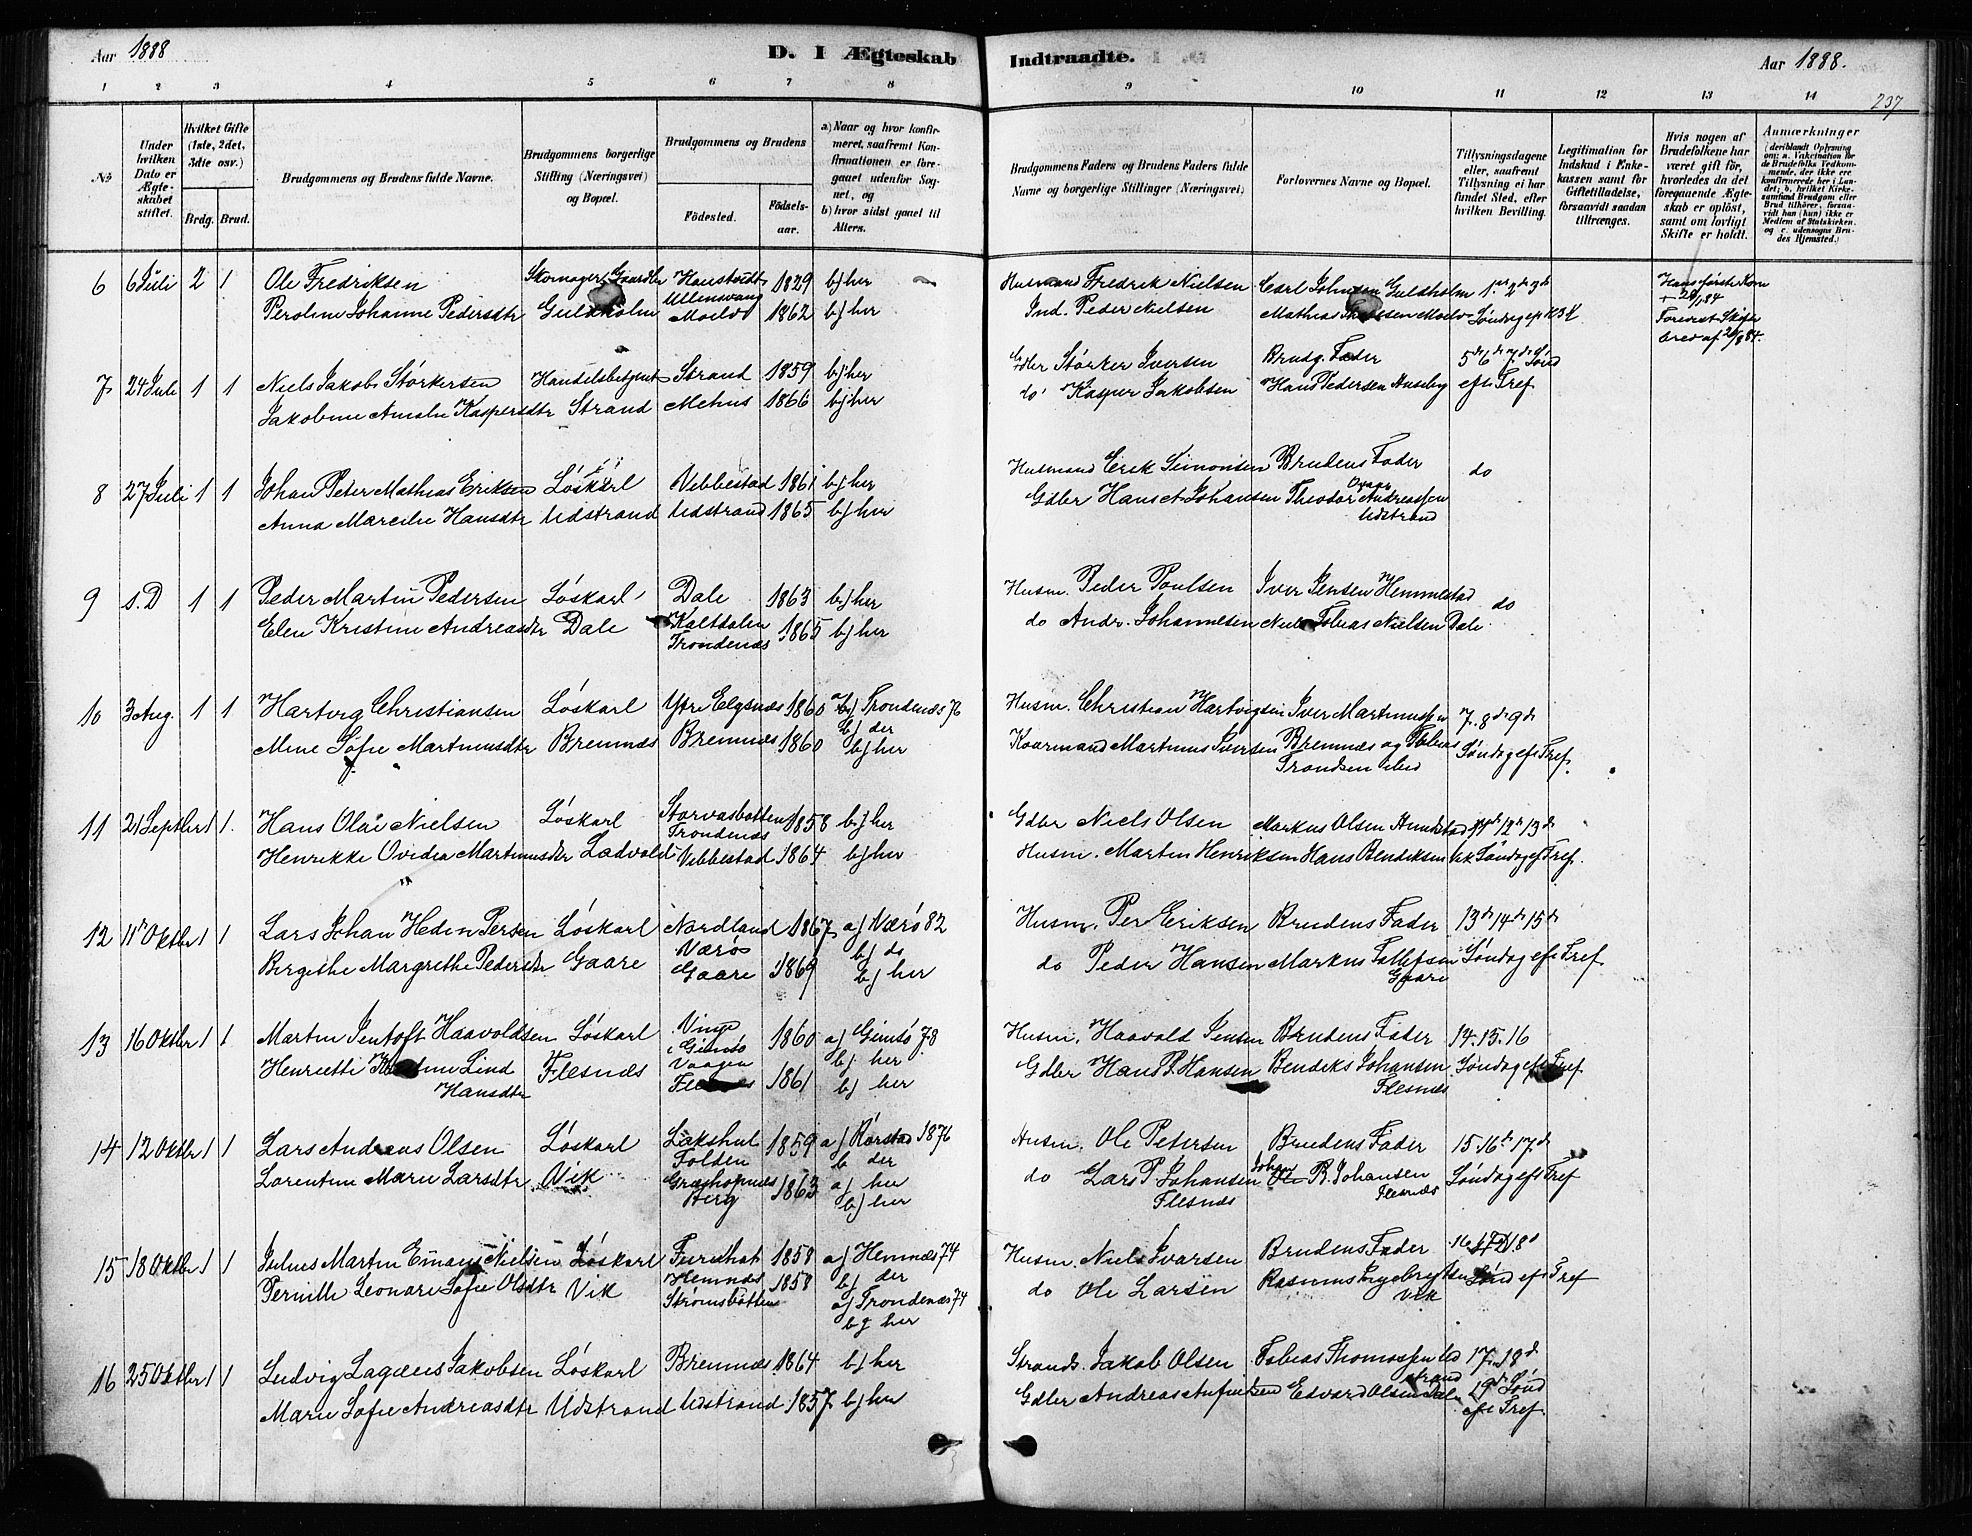 Aar 1888
D. I Ægteskab Indtraadte.
Aar 1888.
237
1 2 3 4 5 6 7 8 9 10 11 12 13 14
No
Under hvilken Dato er Ægteskabet stiftet.
Hvilket Gifte (1ste, 2det, 3die osv.)
Brdg. Brud.
Brudgommens og Brudens fulde Navne.
Brudgommens borgerlige Stilling (Næringsvei) og Bopæl.
Brudgommens og Brudens
Födested.
Födselsaar.
a) Naar og hvor konfirmeret, saafremt Konfirmationen er foregaaet udenfor Sognet, og
b) hvor sidst gaaet til Alters.
Brudgommens Faders og Brudens Faders fulde Navne og borgerlige Stillinger (Næringsvei)
Forlovernes Navne og Bopæl.
Tillysningsdagene eller, saafremt Tillysning ei har fundet Sted, efter hvilken Bevilling.
Legitimation for Indskud i Enkekassen samt for Giftetilladelse, forsaavidt saadan tiltrænges.
Hvis nogen af Brudefolkene har været gift før, hvorledes da det foregaaende Ægteskab er oplöst, samt om lovligt Skifte er holdt.
Anmærkninger (deriblandt Oplysning om: a. Vakcination for de Brudefolks Vedkommende, der ikke ere konfirmerede her i Landet; b. hvilket Kirkesamfund Brudgom eller Brud tilhörer, forsaavidt han (hun) ikke er Medlem af Statskirken, og c. udensogns Brudes Hjemsted.)
6 6 Juli 2 1 Ole Fredriksen Skomager 1829 b) her Husmand Fredrik Nielsen Carl Johnsen Guldholm 1ste 2de 3de Hans første Kone
Peroline Johanne Pedersdtr Guldholm Moelv 1862 b) her Ind. Peder Nielsen Mathias Moelv Søndag
7 24 Juli 1 1 Niels Jakob Størkersen Handelsbetjent Strand 1859 b) her Gdbr Størker Iversen Brudg. Fader 5de 6de 7de Sønd
Jakobine Amalie Kaspersdtr Strand Mehus 1866 b) her do Kasper Jakobsen Hans Pedersen Aneby eft Tref
8 27 Juli 1 1 Johan Peter Mathias Eriksen Løskarl Vebbestad 1861 b) her Husmand Erik Simonsen Brudens Fader do
Anna Marcilie Hansdtr Udstrand Udstrand 1865 b) her Gdbr Hans A Johansen Theodor Andreassen
Udstrand
9 s.D 1 1 Peder Martin Pedersen Løskarl Dale 1863 b) her Husm. Peder Poulsen Iver Jensen Hemmestad do
Elen Kristine Andreasdtr Dale Kaltdalen 1865 b) her do Andr. Johannesen Niels Tobias Nielsen Dale
Trondenæs
10 3 Aug. 1 1 Hartvig Christiansen Løskarl Ytre Elgsnæs 1860 a) Trondenæs 76 Husm. Christian Hartvigsen Iver Martinussen 7. 8de 9de
b) der
Mine Sofie Martinusdtr Bremnæs Bremnæs 1860 b) her Martinus Iversen Bremnæs og Tobias Søndag eft Tref.
Trondsen ibid
11 21 Septbr 1 1. Hans Olai Nielsen Løskarl Storvasbotten 1858 b) her Gdbr Niels Olsen Markus Olsen 11de 12te 13de
Trondenæs
Henrikke Ovidea Martinusdtr Ladvold Vebbestad 1864 b) her Husm. Martin Henriksen Hans Bendiksen Søndag eft Tref.
12 11te Oktbr 1 1 Lars Johan Hedin Persen Løskarl Nordland 1867 a) Værø 82 Husm. Per Eriksen Brudens Fader 13de 14de 15de
Værø b) do
Bergithe Margrethe Pedersdtr Gaare Gaare 1869 b) her do Peder Hansen Markus Tollefsen Søndag eft Tref
Gaare
13 16 Oktbr 1 1 Martin Jentoft Haavoldsen Løskarl 1860 a) Gimsø 78 Husm. Haavold Jensen Brudens Fader 14. 15. 16
Gimsø b) her
Vaagen
Henriette Lind Flesnæs 1861 b) her Gdbr Hans P. Hansen Bendiks Johansen Søndag eft Tref
Hansdtr Flesnæs
14 12 Oktbr 1 1 Lars Andreas Olsen Løskarl 1859 a) Rørstad 1876 Husm. Ole Petersen Brudens Fader 15. 16de 17de
Folden b der
Lorentine Marie Larsdtr Vik Græshopnæs 1863 a) her do Lars P. Johansen Johan B. Johansen Søndag eft Tref
b) her Flesnæs Flesnæs
15 18 Oktbr 1 1 Julius Martin Nielsen Løskarl 1858 a) Hemnæs 74 Husm. Niels Ivarsen Brudens Fader 16. 17. 18d
Hemnæs b) der
Pernille Leonare Sofie Olsdtr Vik Strømsbotten 1858 a) Trondenæs 74 do Ole Larsen Rasmus Ingebregtsen Sønd eft Tref
b) her Vik
16 25 Oktbr 1 1 Ludvig Lagæus Jakobsen Løskarl Bremnæs 1864 b) her Strands. Jakob Olsen Tobias Thomassen Ud 17. 18de
strand
Marie Sofie Andreasdtr Udstrand Udstrand 1857 b) her Gdbr Andreas Anfindsen Edvard Olsen Dale 19de Sønd
eft Tref.